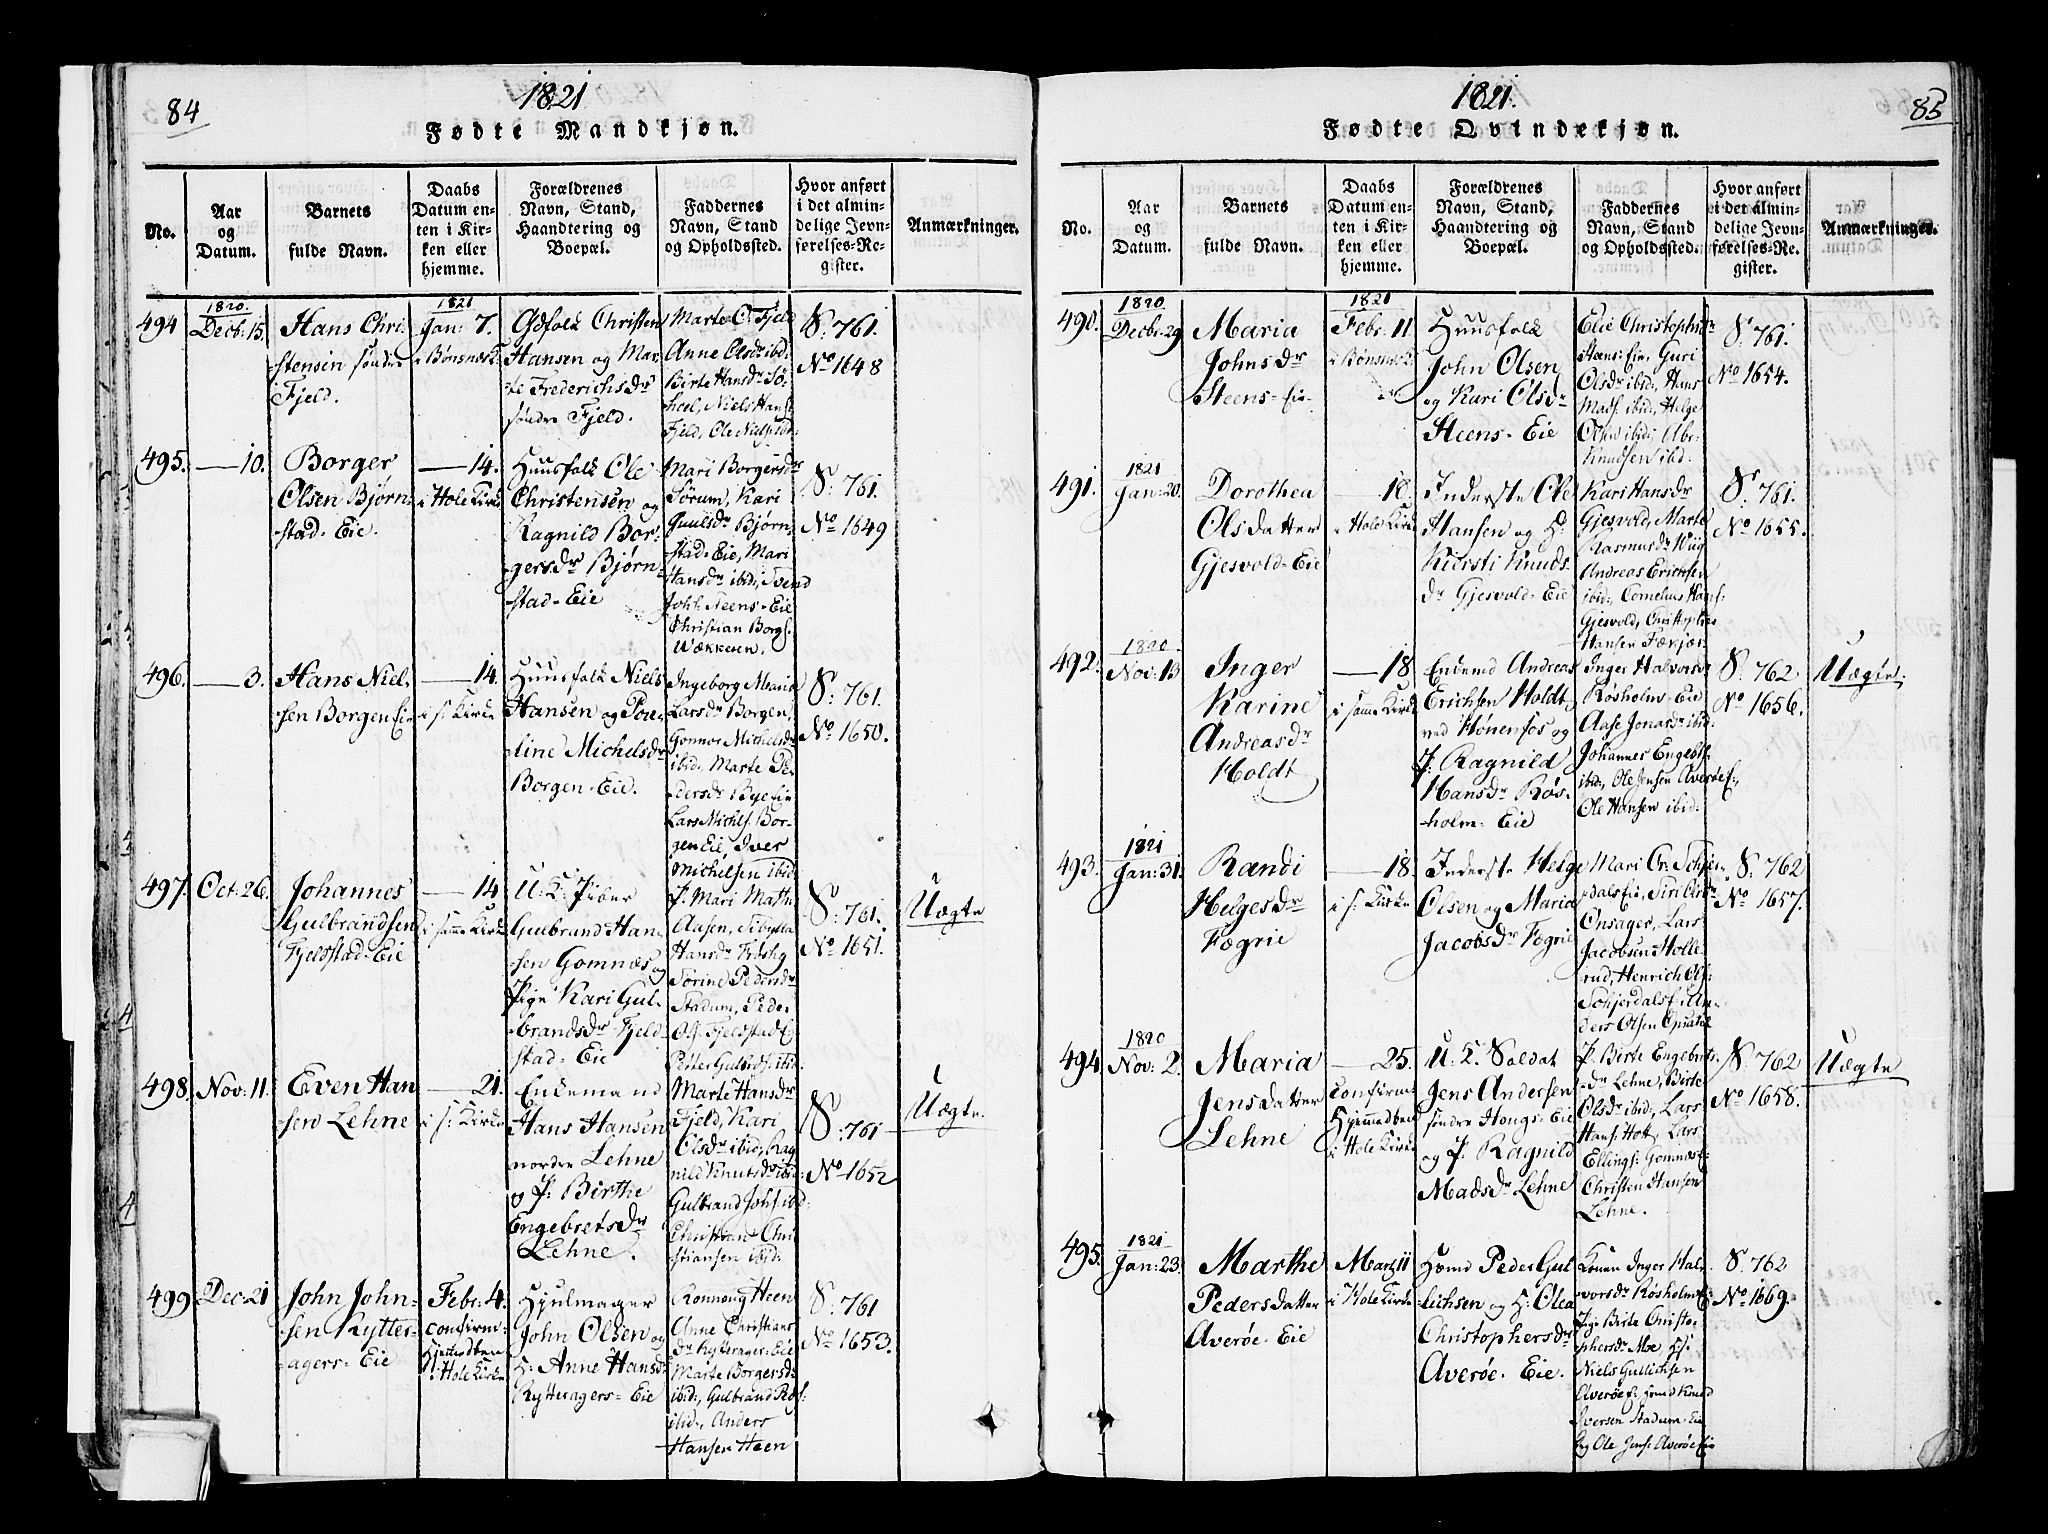 84
1821
Fødte Mandkjøn.
No.
Aar
og
Datum.
Barnets
fulde Navn.
Daabs
Datum en-
ten i Kir-
ken eller
hjemme.
Forældrenes
Navn, Stand,
Haandtering og
Boepæl.
Faddernes
Navn, Stand
og Opholdssted.
Hvor anført
i det almin-
delige Jevn-
førelses-Re-
gister.
Anmærkninger.
494
1820.
Decb: 15.
Hans Chri-
stensen søndre
Fjeld.
1821
Jan: 7.
i Bønsnæs K.
Gdfolk Christen
Hansen og Mar-
te Frederichsdr
søndre Fjeld.
Marte C. Fjeld
Anne Olsdr ibd:
Birte Hansdr Sø-
hoel, Niels Hans:
Fjeld, Ole
S: 761.
No 1648
495.
—10.
Borger
Olsen Bjørn-
stad-Eie.
—14.
i Hole Kirke
Huusfolk Ole
Christensen og
Ragnild Bor-
gersdr Bjørn-
stad-Eie
Mari Borgersdr
Sørum, Kari
Juulsdr Bjørn-
stad-Eie, Mari
Hansdr ibid:, Svend
Joh: Steens-Eie
Christian Borgs.
S: 761.
No 1649
496.
—3.
Hans Niel-
sen Borgen Eie
—14.
i s: Kirke
Huusfolk Niels
Hansen og Pou-
line Michelsdr
Borgen-Eie.
Ingeborg Marie
Larsdr Borgen,
Gonnor Michelsdr
ibid:, Marte Pe-
dersdr Bye Eie
Lars Michls. Bor-
gen Eie, Iver
Michelsen ibid
S: 761.
No 1650.
497.
Oct: 26.
Johannes
Gulbrandsen
Fjeldstad-Eie
—14
i samme Kirke
U: K: Piber
Gulbrand Han-
sen Gomnæs og
Pige Kari Gul-
brandsdr Fjeld-
stad-Eie
P. Mari Math:
Aasen, Sibylla
Hansdr Frøshg
Torine Pedersdr
Stadum, Peder
Ols. Fjeldstad E
Peter Gulbrs: ibid
S: 761.
No 1651.
Uægte
498.
Nov: 11.
Even Han
sen Lehne
—21.
i s: Kirke
Enkemand
Hans Hansen
nordre Lehne
og P: Birthe
Engebretsdr
Lehne.
Marte Hansdr
Fjeld, Kari
Olsdr ibid, Rag
nild Knutsdr ibid:
Gulbrand Johs. ibd:
Christian Chri
stiansen ibid:
S: 761
No 1652
Uægte.
499
Dec: 21
John John-
sen Rytter-
agers-Eie
Febr: 4.
confirm:
Hjemmedben
i Hole Kirke
Hjulmager
John Olsen og
H: Anne Hansdr
Rytteragers-Eie
Ronnoug Heen
Anne Christians
dr Rytterager-Eie
Marte Borgersdr
ibid:, Gulbrand
ibid:, Anders
Hansen Heen
S: 761
No 1653.
85
1821.
Fødte Qvindekjøn.
No.
Aar
og
Datum.
Barnets
fulde Navn.
Daabs
Datum en-
ten i Kir-
ken eller
hjemme.
Forældrenes
Navn, Stand,
Haandtering og
Boepæl.
Faddernes
Navn, Stand
og Opholdssted.
Hvor anført
i det almin-
delige Jevn-
førelses-Re-
gister.
Anmærkninger.
490.
1820
Decbr: 29
Maria
Johnsdr
Steens-Eie
1821
Febr: 11
i Bønsnæs K.
Huusfolk
John Olsen
og Kari Olsdr
Steens-Eie
Elie Christophsdr
Steens-Eie, Guri
Olsdr ibid:, Hans
Mads. ibid:, Helge
Olsen ibid:
Knudsen ibd:
S: 761.
No 1654.
491.
1821
Jan: 20.
Dorothea
Olsdatter
Gjesvold-Eie
—18.
i Hole Kirke
Inderste Ole
Hansen og H:
Kiersti Knuds-
dr Gjesvold-Eie
Kari Hansdr
Gjesvold, Marte
Rasmusdr Wiig
Andreas Erichsen
ibid:, Cornelius Hans:
Gjesvold, Christopher
Hansen
S: 761.
No 1655.
492.
1820
Nov: 13
Inger
Karine
Andreasdr
Holdt
—18
i samme Kirke
Enkemd Andreas
Erichsen Holdt
ved Hønenfos og
P. Ragnild
Hansdr Røs-
holm-Eie
Inger Halvorsdr
Røsholm-Eie
Aase Jonasdr ibid:
Johannes Engebls.
ibid:, Ole Jensen Averøe E:,
Ole Hansen ibid:
S: 762
No 1656.
Uægte.
493.
1821
Jan: 31.
Randi
Helgesdr
Fægrie
—18.
i s: Kirke
Inderste Helge
Olsen og Maria
Jacobsdr Fægrie
Mari Cr: Schjer-
dals Eie, Siri
Onsager, Lars
Jacobsen Holle-
rud, Henrich Ols:
Schjerdals E: An-
ders Olsen Opsatel
S: 762
No 1657.
494.
1820
Nov: 2.
Maria
Jensdatter
Lehne
—25.
confirm:
Hjemmedben
i Hole Kirke
U: K. Soldat
Jens Andersen
søndre Hougs-Eie
og P. Ragnild
Madsdr Lehne
P. Birte Engebrets-
dr Lehne, Birte
Olsdr ibid:, Lars
Hans: Hott, Lars
Ellings: Gomnæs E:
Christen Hansen
Lehne.
S: 762
No 1658.
Uægte
495.
1821
Jan: 23.
Marthe
Pedersdatter
Averøe-Eie
Martz 11
i Hole Kirke
Hmd Peder Gul
lichsen og H: Olea
Christophersdr
Averøe-Eie.
Konen Inger Hal-
vorsdr Røsholm E:
Pige Birte Christo-
phersdr Moe
Niels Gullichsen
Averøe E: Hmd Knud
Iversen Stadum-Eie
og Ole Jens: Averøe Eie
S: 762
No 1669.